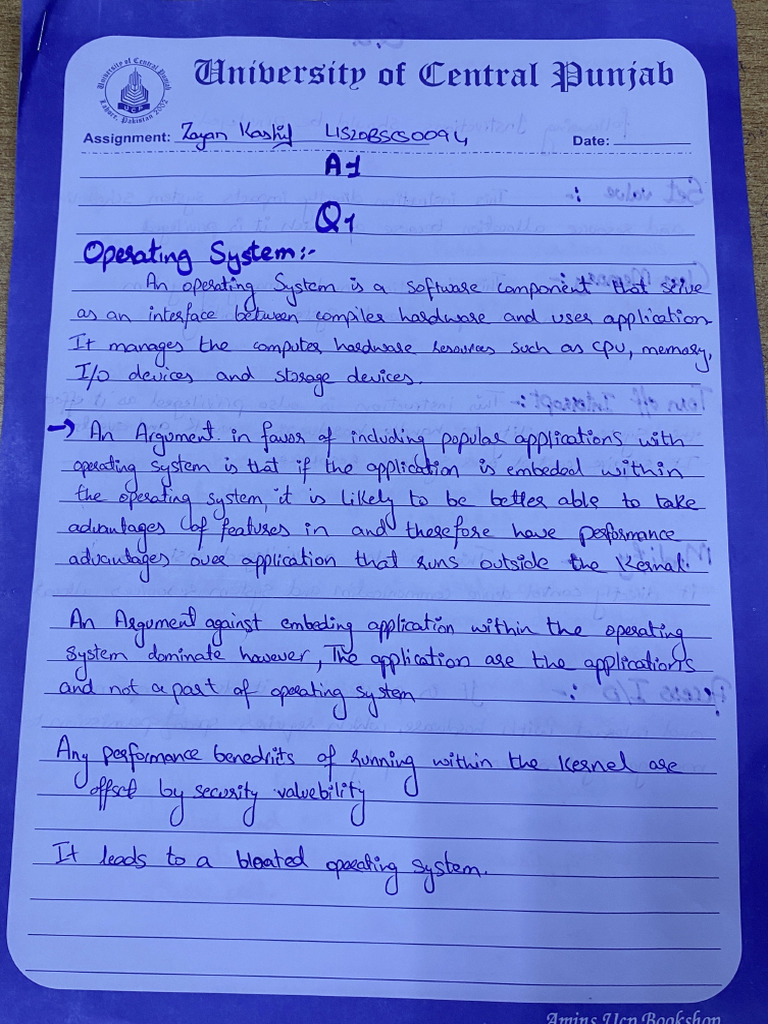 University of Central Punjab
University of Central Punjab
UCP
Lahore, Pakistan 2002
Assignment: Zayan Kashif L1S20BSCS0094 Date:
A1
Q1
Operating System:-
An operating System is a software component that serve
as an interface between compiler hardware and user application
It manages the computer hardware resources such as CPU, memory,
I/O devices and storage devices.
→ An Argument in favor of including popular applications with
operating system is that if the application is embeded within
the operating system, it is likely to be better able to take
advantages of features in and therefore have performance
advantages over application that runs outside the Kernal.
An Argument against embeding application within the operating
system dominate however, The application are the applications
and not a part of operating system
Any performance benedriits of running within the kernel are
offset by security valuebility
It leads to a bloated operating system.
Amins Ucp Bookshop